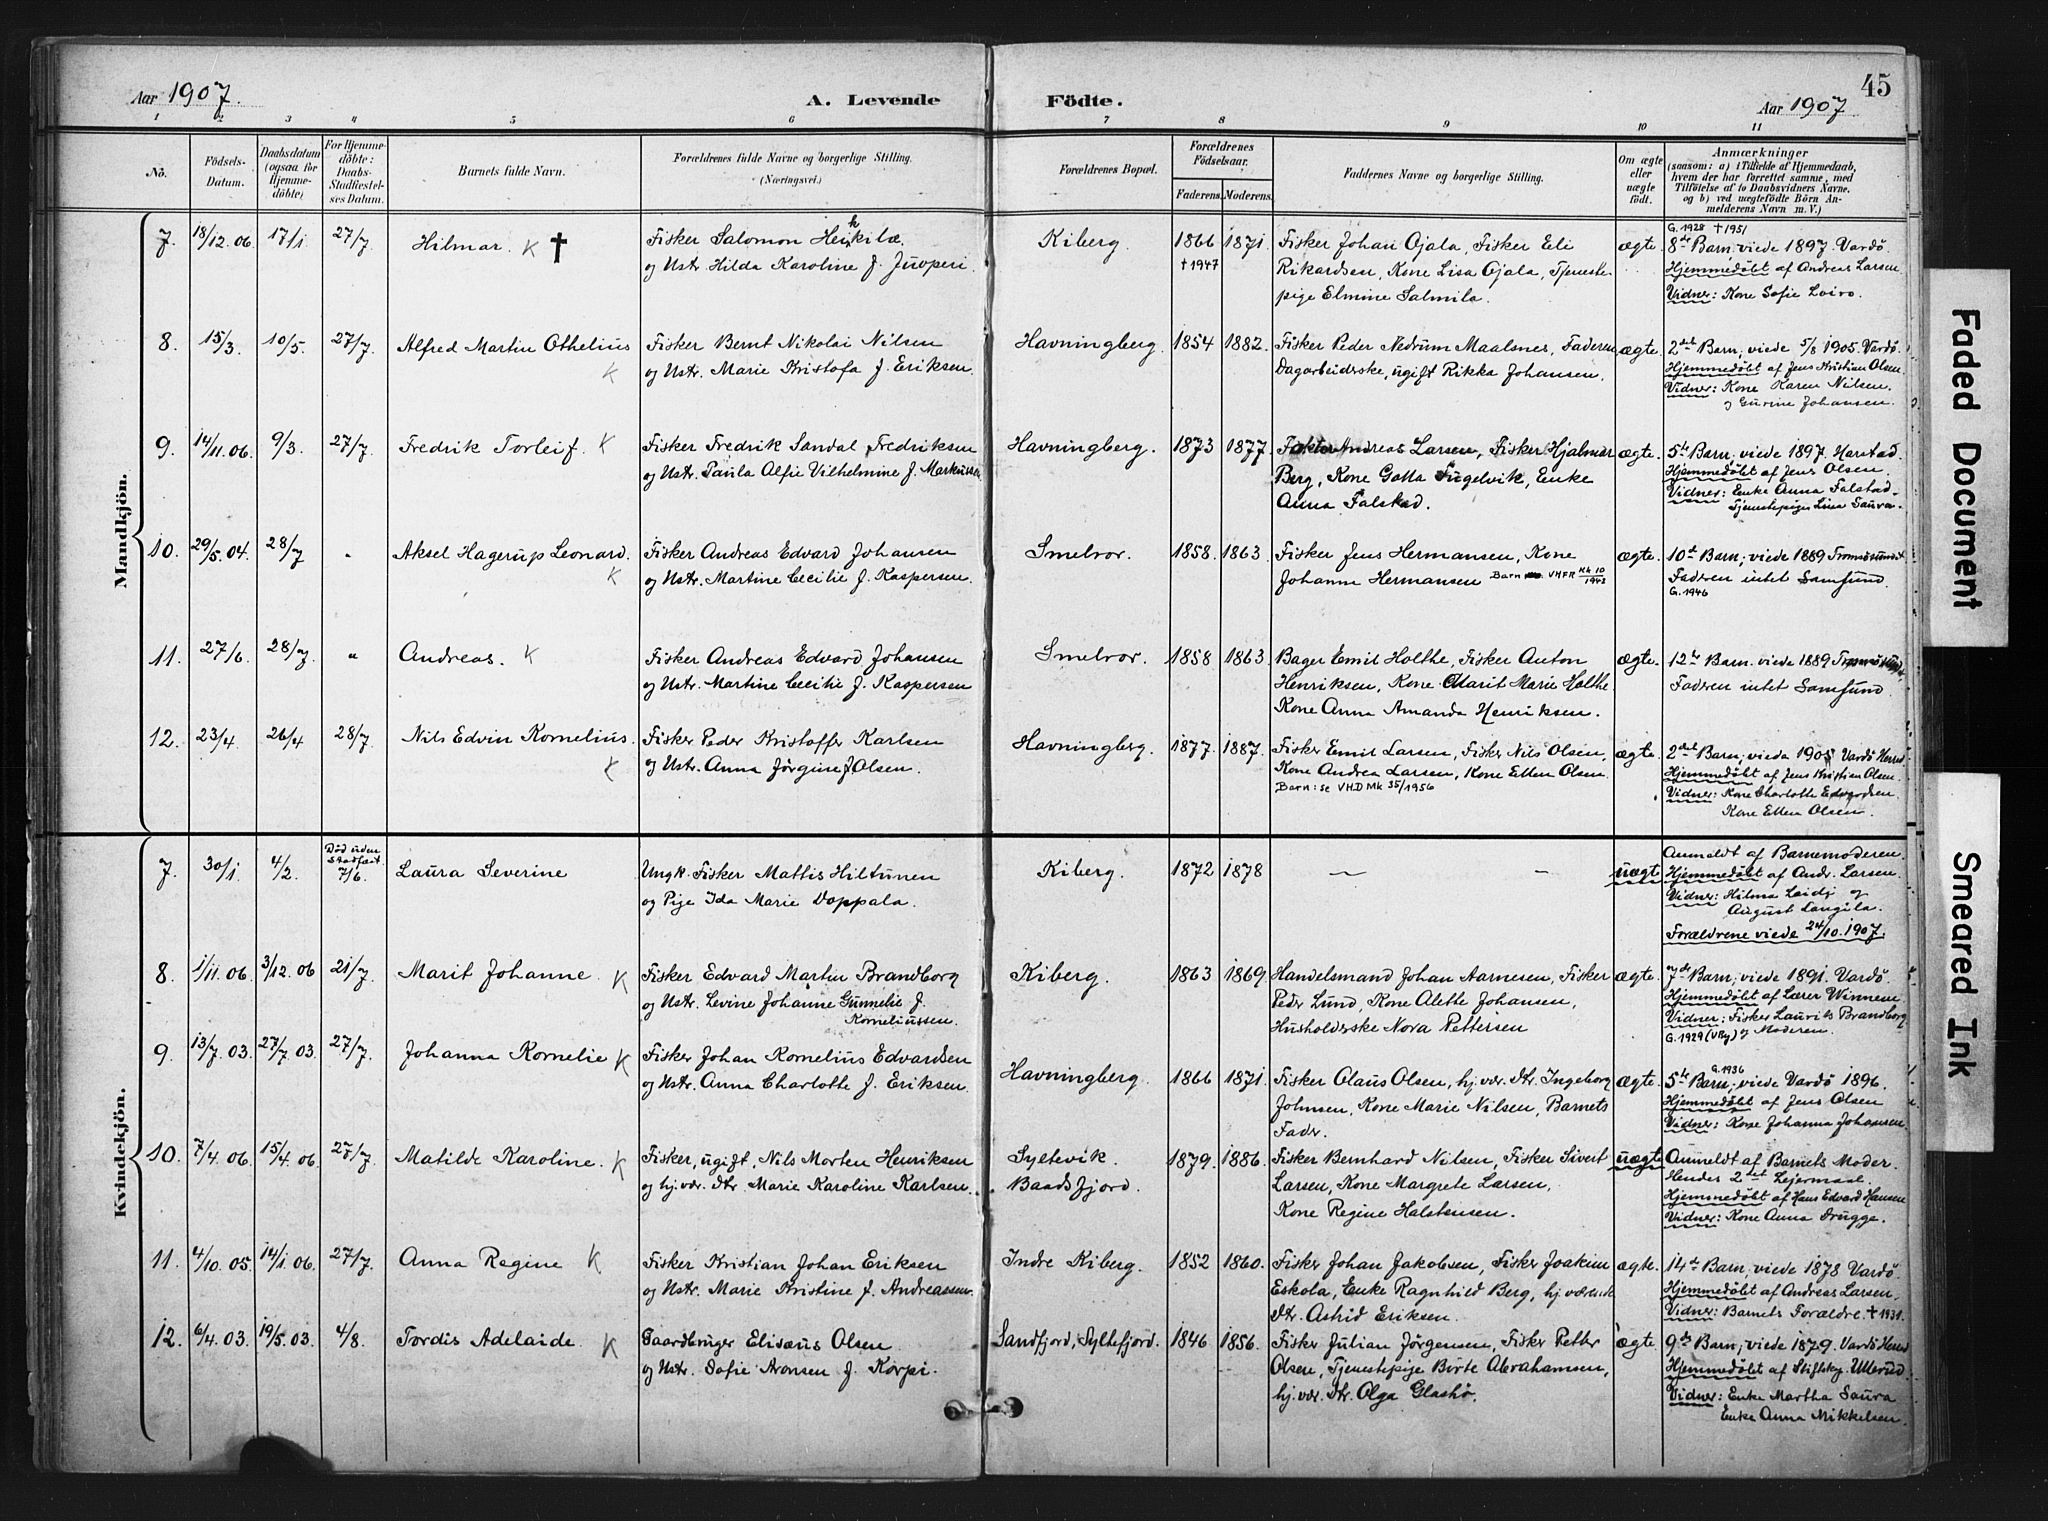 Aar 1907.
A. Levende Födte.
Aar 1907
45
1 2 3 4 5 6 7 8 9 10 11
No.
Födsels-Datum.
Daabsdatum (ogsaa for Hjemme-döbte)
For Hjemme-döbte: Daabs-Stadfæstel-ses Datum.
Barnets fulde Navn.
Forældrenes fulde Navne og borgerlige Stilling. (Næringsvei.)
Forældrenes Bopæl.
Forældrenes Födselsaar.
Faderens. Moderens.
Faddernes Navne og borgerlige Stilling.
Om ægte eller uægte födt.
Anmærkninger
(saasom: a) i Tilfælde af Hjemmedaab,
hvem der har forrettet samme, med
Tilföielse af to Daabsvidners Navne,
og b) ved uægtefödte Börn An-
melderens Navn m. V.)
Mandkjön.
7. 18/12.06. 17/1. 27/7. Hilmar. K †
Fisker Salomon Heikkilæ.
og Ustr. Hilda Karoline f. Juoperi.
Kiberg. 1866 †1947 1871.
Fisker Johan Ojala, Fisker Eli
Rikardsen, Kone Lisa Ojala, Tjeneste-
pige Elmine Salmila.
ægte.
G. 1928 †1951
8de Barn, viede 1897. Vardø.
Hjemmedøbt af Andreas Larsen.
Vidner: Kone Sofie Loiro.
8. 15/3. 10/5. 27/7. Alfred Martin Othelius K
Fisker Bernt Nikolai Nilsen
og Ustr. Marie Kristofa f. Eriksen.
Havningberg. 1854 1882.
Fisker Peder Nedrum Maalsnes, Faderen
Dagarbeiderske, ugift Rikka Johansen.
ægte.
2det Barn, viede 5/8 1905. Vardø.
Hjemmedøbt af Jens Kristian Olsen.
Vidner: Kone Karen Nilsen.
og Gurine Johansen.
9. 14/11.06. 9/3. 27/7. Fredrik Torleif. K
Fisker Fredrik Sandal Fredriksen
og Ustr. Paula Alfie Vilhelmine f. Markussen
Havningberg. 1873 1877.
Faktor Andreas Larsen, Fisker Hjalmar
Berg, Kone Gotta Fugelvik, Enke
Anna Falstad.
ægte.
5te Barn, viede 1897. Harstad.
Hjemmedøbt af Jens Olsen.
Vidner: Enke Anna Falstad.
Tjenestepige Lina Saura.
10. 29/5.04. 28/7 " Aksel Hagerup Leonard. K
Fisker Andreas Edvard Johansen
og Ustr. Martine Cecilie f. Kaspersen.
Smelror. 1858. 1863.
Fisker Jens Hermansen, Kone
Johanna Hermansen Barn VHFR Mk 10/1943
ægte.
10de Barn, viede 1889 Tromsøsundet
Faderen intet Samfund.
G. 1946
11. 27/6. 28/7. " Andreas. K
Fisker Andreas Edvard Johansen
og Ustr. Martine Cecilie f. Kaspersen
Smelror. 1858 1863
Bager Emil Holthe, Fisker Anton
Henriksen, Kone Marit Marie Holthe
Kone Anna Amanda Henriksen.
ægte.
12te Barn. viede 1889
Faderen intet Samfund.
12. 23/4. 26/4 28/7. Nils Edvin Kornelius. K
Fisker Peder Kristoffer Karlsen
og Ustr. Anna Jørgine f Olsen.
Havningberg. 1877. 1887.
Fisker Emil Larsen, Fisker Nils Olsen,
Kone Andrea Larsen, Kone Ellen Olsen.
Barn: se VHD Mk 35/1956
ægte.
2det Barn, viede 1905 Vardø Herred
Hjemmedøbt af Jens Kristian Olsen.
Vidner: Kone Charlotte Edvardsen.
Kone Ellen Olsen.
Kvindekjön.
7. 30/1. 4/2. Död uden stadfæst. 7/6. Laura Severine
Ungk. Fisker Mattis Hiltunen
og Pige Ida Marie Doppala.
Kiberg. 1872 1878
— — uægte
Anmeldt af Barnemoderen.
Hjemmedøbt af Andr. Larsen.
Vidner: Hilma Laidj og
August Langila.
Forældrene viede 24/10.1907.
8. 1/11.06. 3/12.06 21/7. Marit Johanne. K
Fisker Edvard Martin Brandborg
og Ustr. Levine Johanne Gunnelie f.
Korneliussen.
Kiberg. 1863 1869
Handelsmand Johan Aarnesen, Fisker
Peder Lund, Kone Alette Johansen,
Husholderske Nora Pettersen
ægte.
7de Barn, viede 1891. Vardø
Hjemmedøbt af Lærer Winnem
Vidner: Fisker Laurits Brandborg
G. 1929 (VBy) og Moderen.
9. 13/7.03. 27/7.03. 27/7. Johanna Kornelie K
Fisker Johan Kornelius Edvardsen
og Ustr. Anna Charlotte f. Eriksen.
Havningberg. 1866 1871.
Fisker Olaus Olsen, hj.vær. Dtr. Ingeborg
Johnsen, Kone Marie Nilsen, Barnets
Fader.
ægte.
G. 1936
5te Barn, viede Vardø 1896.
Hjemmedøbt af Jens Olsen
Vidner: Kone Johanna Johansen.
10. 7/4.06. 15/4.06 27/7. Matilde Karoline. K
Fisker, ugift, Nils Morten Henriksen
og hj.vær. Dtr. Marie Karoline Karlsen.
Syltevik.
Baadsfjord.
1879. 1886.
Fisker Bernhard Nilsen, Fisker Sivert
Larsen, Kone Margrete Larsen,
Kone Regine Halstensen.
uægte
Anmeldt af Barnets Moder.
Hendes 2det Leiermaal.
Hjemmedøbt af Hans Edvard Hansen
Vidner: Kone Anna Drugge.
11. 4/10.05. 14/1.06. 27/7. Anna Regine K
Fisker Kristian Johan Eriksen
og Ustr. Marie Kristine f. Andreassen.
Indre Kiberg. 1852 1860.
Fisker Johan Jakobsen, Fisker Joakim
Eskola, Enke Ragnhild Berg, hj.værende
Dtr. Astrid Eriksen.
ægte.
14de Barn, viede 1878 Vardø.
Hjemmedøbt af Andreas Larsen.
Vidner: Barnets Forældre. †1931.
12. 6/4.03. 19/5.03. 4/8. Tordis Adelaide. K
Gaardbruger Elisæus Olsen
og Ustr. Sofie Aronsen f. Korpi.
Sandfjord, Syltefjord. 1846 1856.
Fisker Julian Jørgensen, Fisker Petter
Olsen, Tjenestepige Börte Abrahamsen,
hj.vær. Dtr. Olga Glashø.
ægte.
9de Barn, viede 1879. Vardø Herred
Hjemmedøbt af Stiftskap. Ullerud.
Vidner: Enke Martha Saura
Enke Anna Mikkelsen.
Faded Document
Smeared Ink